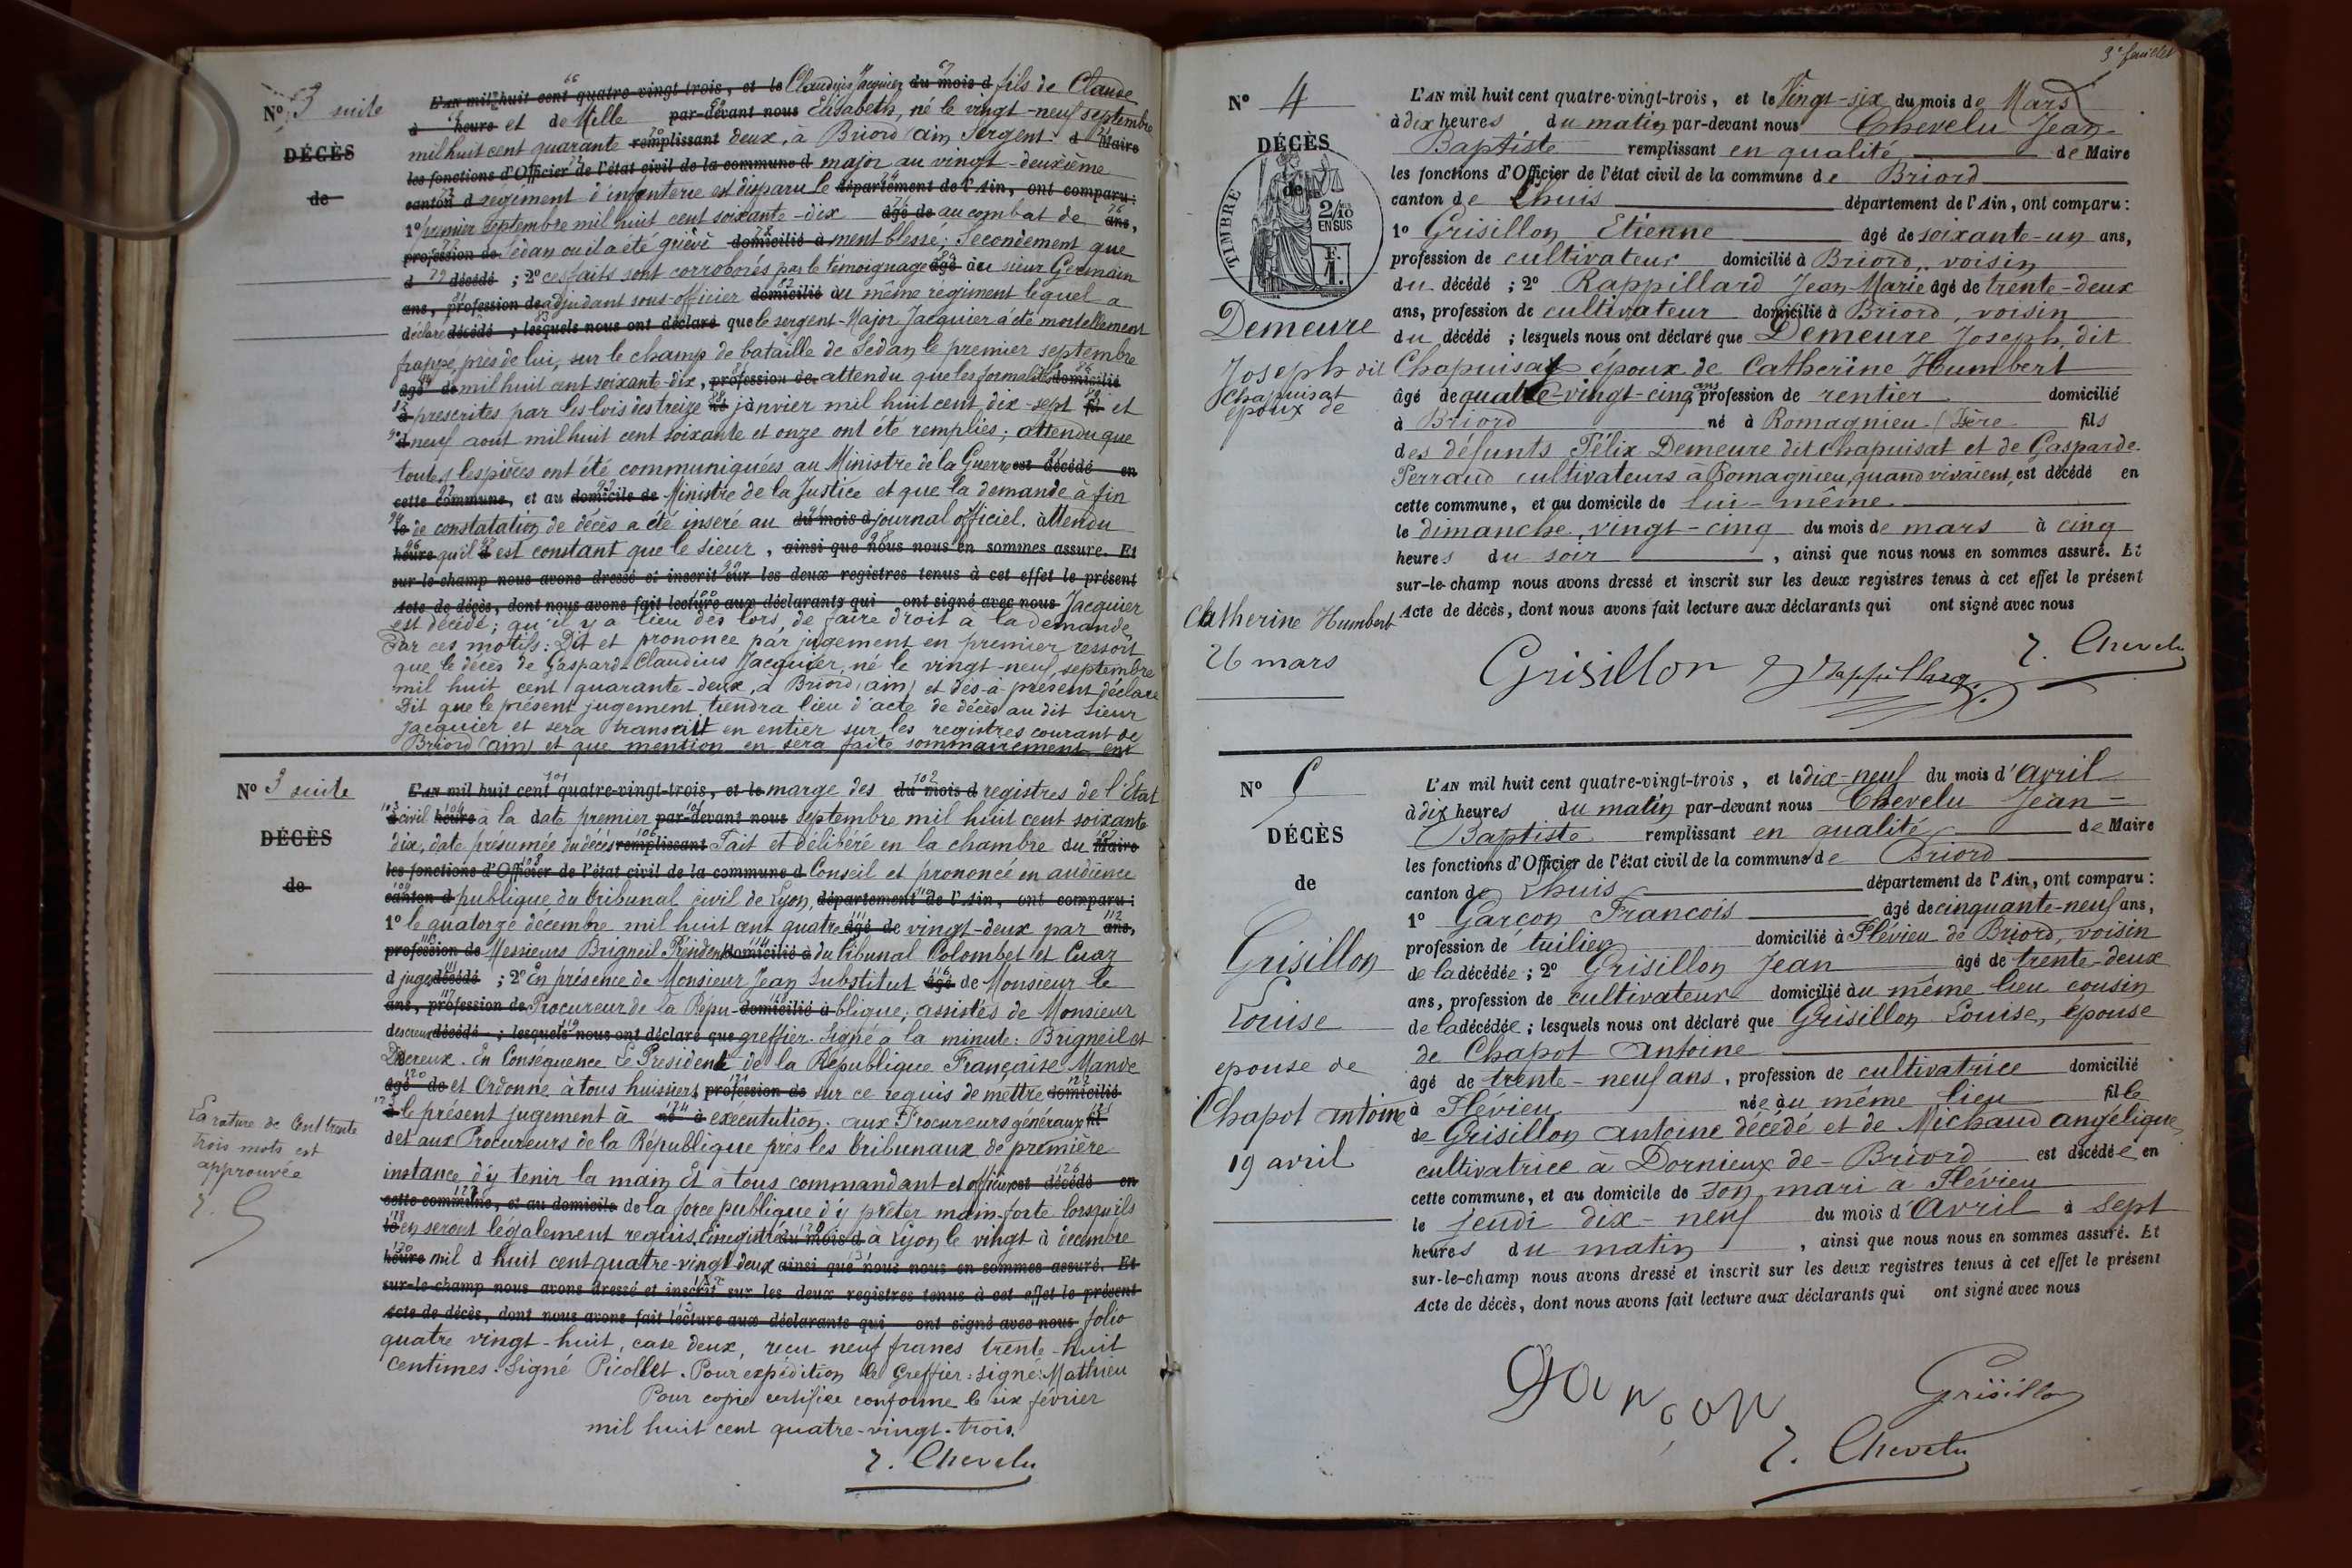 No 3 suite
DÉCÈS
de
L'AN mil huit cent quatre-vingt trois, et le Claudius Jacquier du mois d fils de Claude
à heure et de Mille par-devant nous Elisabeth, né le vingt-neuf septembre
mil huit cent quarante remplissant deux, à Briord (ain) Sergent d Maire
les fonctions d'Officier de l'état civil de la commune d major au vingt-deuxième
canton d régiment d'infanterie est disparu le département de l'Ain, ont comparu:
1o premier septembre mil huit cent soixante-dix âgé de au combat de ans,
profession de Sedan ou il a été griève domicilié à ment blessé; Secondement que
d décédé ; 2o ces faits sont corroborés par le témoignage âgé du sieur Germain
ans, profession de adjudant sous-officier domicilié au même régiment lequel a
déclaré décédé ; lesquels nous ont déclaré que le sergent-Major Jacquier a été mortellement
frappé, près de lui, sur le champ de bataille de Sedan le premier septembre
âgé de mil huit cent soixante-dix, profession de attendu que les formalités domicilié
à prescrites par les lois des treize né janvier mil huit cent dix-sept fi et
d neuf aout mil huit cent soixante et onze ont été remplies; attendu que
toutes les pièces ont été communiquées au Ministre de la Guerre est décédé en
cette commune, et au domicile de Ministre de la Justice et que la demande à fin
le de constatation de décès a été inséré au du mois d journal officiel. attendu
heure qu'il d est constant que le sieur, ainsi que nous nous en sommes assuré. Et
sur-le champ nous avons dressé et inscrit sur les deux registres tenus à cet effet le présent
Acte de décès, dont nous avons fait lecture aux déclarants qui ont signé avec nous Jacquier
est décédé; qu'il y a lieu dès lors, de faire droit à la demande
Par ces motifs: Dit et prononce par jugement en premier ressort
que le décès de Gaspard-Claudius Jacquier, né le vingt-neuf septembre
mil huit cent quarante-deux, à Briord (ain) et dès-à-présent déclaré
Dit que le présent jugement tiendra lieu d'acte de décès au dit Sieur
Jacquier et sera transcrit en entier sur les registres courant de
Briord (ain) et que mention en sera faite sommairement en
No 3 suite
DÉCÈS
de
L'AN mil huit cent quatre-vingt-trois, et le marge des du mois d registres de l'Etat
à civil heure à la date premier par-devant nous septembre mil huit cent soixante
dix, date présumée du décès remplissant Fait et délibéré en la chambre du Maire
les fonctions d'Officier de l'état civil de la commune d Conseil et prononcé en audience
canton d publique du tribunal civil de Lyon, département de l'Ain, ont comparu:
1o le quatorze décembre mil huit cent quatre âgé de vingt-deux par ans,
profession de Messieurs Brigneil Président domicilié à du tribunal Colombet et Cuaz
d juges décédé ; 2o En présence de Monsieur Jean Substitut âgé de Monsieur le
ans, profession de Procureur de la Répu- domicilié à blique; assistés de Monsieur
descreux décédé ; lesquels nous ont déclaré que greffier. Signé à la minute: Brigneil et
Descreux. En Conséquence Le Président de la République Française Mande
âgé de et Ordonne à tous huissiers profession de sur ce requis de mettre domicilié
à le présent jugement à né à exécutution; aux Procureurs généraux fi
d et aux Procureurs de la République près les tribunaux de première
instance d'y tenir la main et à tous commandant et officiers est décédé en
cette commune, et au domicile de de la force publique d'y prêter main-forte lorsqu'ils
le en seront légalement requis. Enregistré du mois d à Lyon le vingt à décembre
heure mil d huit cent quatre-vingt deux ainsi que nous nous en sommes assuré. Et
sur-le-champ nous avons dressé et inscrit sur les deux registres tenus à cet effet le présent
Acte de décès, dont nous avons fait lecture aux déclarants qui ont signé avec nous folio
quatre vingt-huit, case deux, reçu neuf francs trente-huit
centimes. Signé Picollet. Pour expédition le Greffier: signé: Mathieu
Pour copie certifiée conforme le six février
mil huit cent quatre-vingt-trois.
J. Chevelu
La rature de Cent trente
trois mots est
approuvée
J. C
9e feuillet
No 4
DÉCÈS
de
TIMBRE
2/10
EN SUS
F.
1.
Demeure
Joseph dit
Chapuisat
époux de
Catherine Humbert
26 mars
L'AN mil huit cent quatre-vingt-trois, et le Vingt-six du mois de Mars
à dix heures du matin par-devant nous Chevelu Jean-
Baptiste remplissant en qualité de Maire
les fonctions d'Officier de l'état civil de la commune de Briord
canton de Lhuis département de l'Ain, ont comparu:
1o Grisillon Etienne âgé de soixante-un ans,
profession de cultivateur domicilié à Briord, voisin
du décédé ; 2o Rappillard Jean-Marie âgé de trente-deux
ans, profession de cultivateur domicilié à Briord, voisin
du décédé ; lesquels nous ont déclaré que Demeure Joseph dit
Chapuisat époux de Catherine Humbert
âgé de quatre-vingt-cinq ans profession de rentier domicilié
à Briord né à Romagnieu (Isère fils
des défunts Félix Demeure dit Chapuisat et de Gasparde
Perraud cultivateurs à Romagnieu, quand vivaient, est décédé en
cette commune, et au domicile de lui-même
le dimanche, vingt-cinq du mois de mars à cinq
heures du soir, ainsi que nous nous en sommes assuré. Et
sur-le-champ nous avons dressé et inscrit sur les deux registres tenus à cet effet le présent
Acte de décès, dont nous avons fait lecture aux déclarants qui ont signé avec nous
J. Chevelu
Grisillon Rappillard
No 5
DÉCÈS
de
Grisillon
Louise
epouse de
Chapot antoine
19 avril
L'AN mil huit cent quatre-vingt-trois, et le dix-neuf du mois d'Avril
à dix heures du matin par-devant nous Chevelu Jean-
Baptiste remplissant en qualité de Maire
les fonctions d'Officier de l'état civil de la commune de Briord
canton de Lhuis département de l'Ain, ont comparu:
1o Garçon Francois âgé de cinquante-neuf ans,
profession de tuilier domicilié à Flévieu de Briord, voisin
de la décédée ; 2o Grisillon Jean âgé de trente-deux
ans, profession de cultivateur domicilié au même lieu cousin
de la décédée ; lesquels nous ont déclaré que Grisillon Louise, épouse
de Chapot antoine
âgé de trente-neuf ans, profession de cultivatrice domicilié
à Flévieu née au même lieu fille
de Grisillon antoine décédé et de Michaud angélique,
cultivatrice à Dornieux de-Briord est décédée en
cette commune, et au domicile de son mari a Flévieu
le jeudi dix-neuf du mois d'Avril à sept
heures du matin, ainsi que nous nous en sommes assuré. Et
sur-le-champ nous avons dressé et inscrit sur les deux registres tenus à cet effet le présent
Acte de décès, dont nous avons fait lecture aux déclarants qui ont signé avec nous
Garçon
Grisillon
J. Chevelu